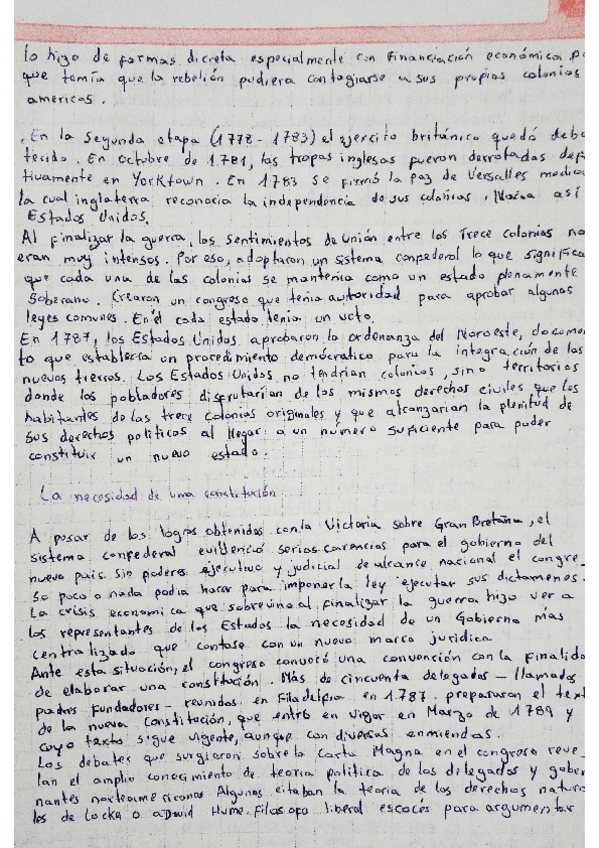 lo hizo de formas discreta especialmente con financiación económica p
que temía que la rebelión pudiera contagiarse a sus propias colonias
americas.
. En la segunda etapa (1778 - 1783) el ejercito británico quedó deb
tecido. En octubre de 1.781, las tropas inglesas fueron derrotadas def
tivamente en Yorktown. En 1783 se firmó la paz de Versalles media
la cual inglaterra, reconocía la independencia de sus colonias. Nacía así
Estados Unidos.
Al finalizar la guerra, los sentimientos de unión entre los trece colonias no
eran muy intensos. Por eso, adoptaron un sistema confederal lo que significa
que cada una de las colonias se mantenía como un estado plenamente
soberano. Crearon un congreso que tenía autoridad para aprobar algunas
leyes comunes. En él cada estado tenía un voto.
En 1787, los Estados Unidos aprobaron la ordenanza del Noroeste, docume
to que establecía un procedimiento demócratico para la integración de los
nuevos tierros. Los Estados Unidos no tendrían colonias, sino territorios
donde los pobladores disfrutarían de los mismos derechos civiles que los
habitantes de las trece colonias originales y que alcanzarían la plenitud de
sus derechos políticos al llegar a un número suficiente para poder
constituir un nuevo estado.
La necesidad de una constitución
A pesar de los logros obtenidos con la Victoria sobre Gran Bretaña, el
sistema confederal evidenció serias carencias para el gobierno del
nuevo país. Sin poderes ejecutivo y judicial de alcance nacional el congre_
so poco o nada podía hacer para imponer la ley ejecutar sus dictamenes.
La crisis economica que sobrevino al finalizar la guerra hizo ver a
los representantes de los Estados la necesidad de un Gobierno más
centralizado que contase con un nuevo marco jurídica
Ante esta situación, el congreso convocó una convención con la finalida
de elaborar una constitución. Más de cincuenta delegados - llamados
padres Fundadores - reunidos en Filadelfia en 1787. prepararon el text
de la nueva Constitución, que entró en vigor en Marzo de 1789 y
cuyo texto sigue vigente, aunque con diversas enmiendas.
Los debates que surgieron sobre la Carta Magna en el congreso reve_
lan el amplio conocimiento de teoría política de los dilegados y gober
nantes norteamericanos Algunos citaban la teoría de los derechos natura
les de Locke o a David Hume. Filosofo liberal escocés para argumentar